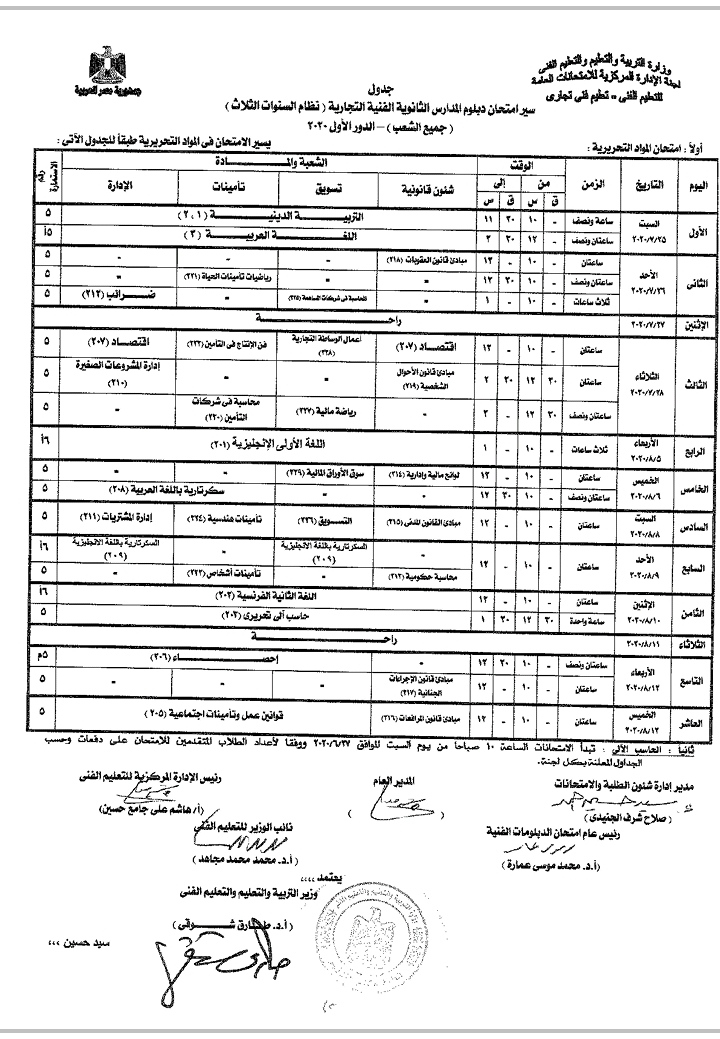 وزارة التربية والتعليم والتعليم الفنى
لجنة الإدارة المركزية للامتحانات العامة
للتعليم الفنى - تعليم فنى تجارى
جمهورية مصر العربية
جدول
سير امتحان دبلوم المدارس الثانوية الفنية التجارية ( نظام السنوات الثلاث )
( جميع الشعب ) – الدور الأول ٢٠٢٠
أولاً : امتحان المواد التحريرية : يسير الامتحان فى المواد التحريرية طبقاً للجدول الآتى :
اليوم التاريخ الزمن الوقت الشعبة والمــادة رقم الاستمارة
من إلى شئون قانونية تسويق تأمينات الإدارة
ق س ق س
الأول السبت ٢٠٢٠/٧/٢٥ ساعة ونصف - ١٠ ٣٠ ١١ التربيــة الدينيــة (١،٢) ٥
ساعتان ونصف - ١٢ ٣٠ ٢ اللغــة العربيــة (٣) ٥أ
الثانى الأحد ٢٠٢٠/٧/٢٦ ساعتان - ١٠ - ١٢ مبادئ قانون العقوبات (٢١٨) - - - ٥
ساعتان ونصف - ١٠ ٣٠ ١٢ - - رياضيات تأمينات الحياة (٢٢١) - ٥
ثلاث ساعات - ١٠ - ١ - المحاسبة فى شركات المساهمة (٢٢٥) - ضــرائب (٢١٢) ٥
الإثنين ٢٠٢٠/٧/٢٧ راحــة
الثالث الثلاثاء ٢٠٢٠/٧/٢٨ ساعتان - ١٠ - ١٢ اقتصــاد (٢٠٧) أعمال الوساطة التجارية (٢٢٨) فن الإنتاج فى التأمين (٢٢٢) اقتصــاد (٢٠٧) ٥
ساعتان ٣٠ ١٢ ٣٠ ٢ مبادئ قانون الأحوال الشخصية (٢١٩) - - إدارة المشروعات الصغيرة (٢١٠) ٥
ساعتان ونصف ٣٠ ١٢ - ٣ - رياضة مالية (٢٢٧) محاسبة فى شركات التأمين (٢٢٠) - ٥
الرابع الأربعاء ٢٠٢٠/٨/٥ ثلاث ساعات - ١٠ - ١ اللغة الأولى الإنجليزية (٢٠١) ٦أ
الخامس الخميس ٢٠٢٠/٨/٦ ساعتان - ١٠ - ١٢ لوائح مالية وإدارية (٢١٤) سوق الأوراق المالية (٢٢٩) - - ٥
ساعتان ونصف - ١٠ ٣٠ ١٢ - - سكرتارية باللغة العربية (٢٠٨) ٥
السادس السبت ٢٠٢٠/٨/٨ ساعتان - ١٠ - ١٢ مبادئ القانون المدنى (٢١٥) التســويق (٢٢٦) تأمينات هندسية (٢٢٤) إدارة المشتريات (٢١١) ٥
السابع الأحد ٢٠٢٠/٨/٩ ساعتان - ١٠ - ١٢ - السكرتارية باللغة الانجليزية (٢٠٩) - السكرتارية باللغة الانجليزية (٢٠٩) ٦أ
محاسبة حكومية (٢١٣) - تأمينات أشخاص (٢٢٣) - ٥
الثامن الإثنين ٢٠٢٠/٨/١٠ ساعتان - ١٠ - ١٢ اللغة الثانية الفرنسية (٢٠٢) ٦أ
ساعة واحدة ٣٠ ١٢ ٣٠ ١ حاسب آلى تحريرى (٢٠٣) ٥
الثلاثاء ٢٠٢٠/٨/١١ راحــة
التاسع الأربعاء ٢٠٢٠/٨/١٢ ساعتان ونصف - ١٠ ٣٠ ١٢ - إحصــاء (٢٠٦) ٥م
ساعتان - ١٠ - ١٢ مبادئ قانون الإجراءات الجنائية (٢١٧) - - - ٥
العاشر الخميس ٢٠٢٠/٨/١٣ ساعتان - ١٠ - ١٢ مبادئ قانون المرافعات (٢١٦) قوانين عمل وتأمينات اجتماعية (٢٠٥) ٥
ثانياً : الحاسب الآلى : تبدأ الامتحانات الساعة ١٠ صباحا من يوم السبت الموافق ٢٠٢٠/٦/٢٧ ووفقا لأعداد الطلاب المتقدمين للامتحان على دفعات وحسب
الجداول المعلنة بكل لجنة.
مدير إدارة شئون الطلبة والامتحانات المدير العام رئيس الإدارة المركزية للتعليم الفنى
( صلاح شرف الجنيدى ) ( ) (أ/ هاشم على جامع حسين)
رئيس عام امتحان الدبلومات الفنية نائب الوزير للتعليم الفنى
(أ.د. محمد موسى عمارة ) (أ.د. محمد محمد مجاهد )
يعتمد ،،،،
وزير التربية والتعليم والتعليم الفنى
(أ.د. طــارق شــوقى )
سيد حسين ،،،